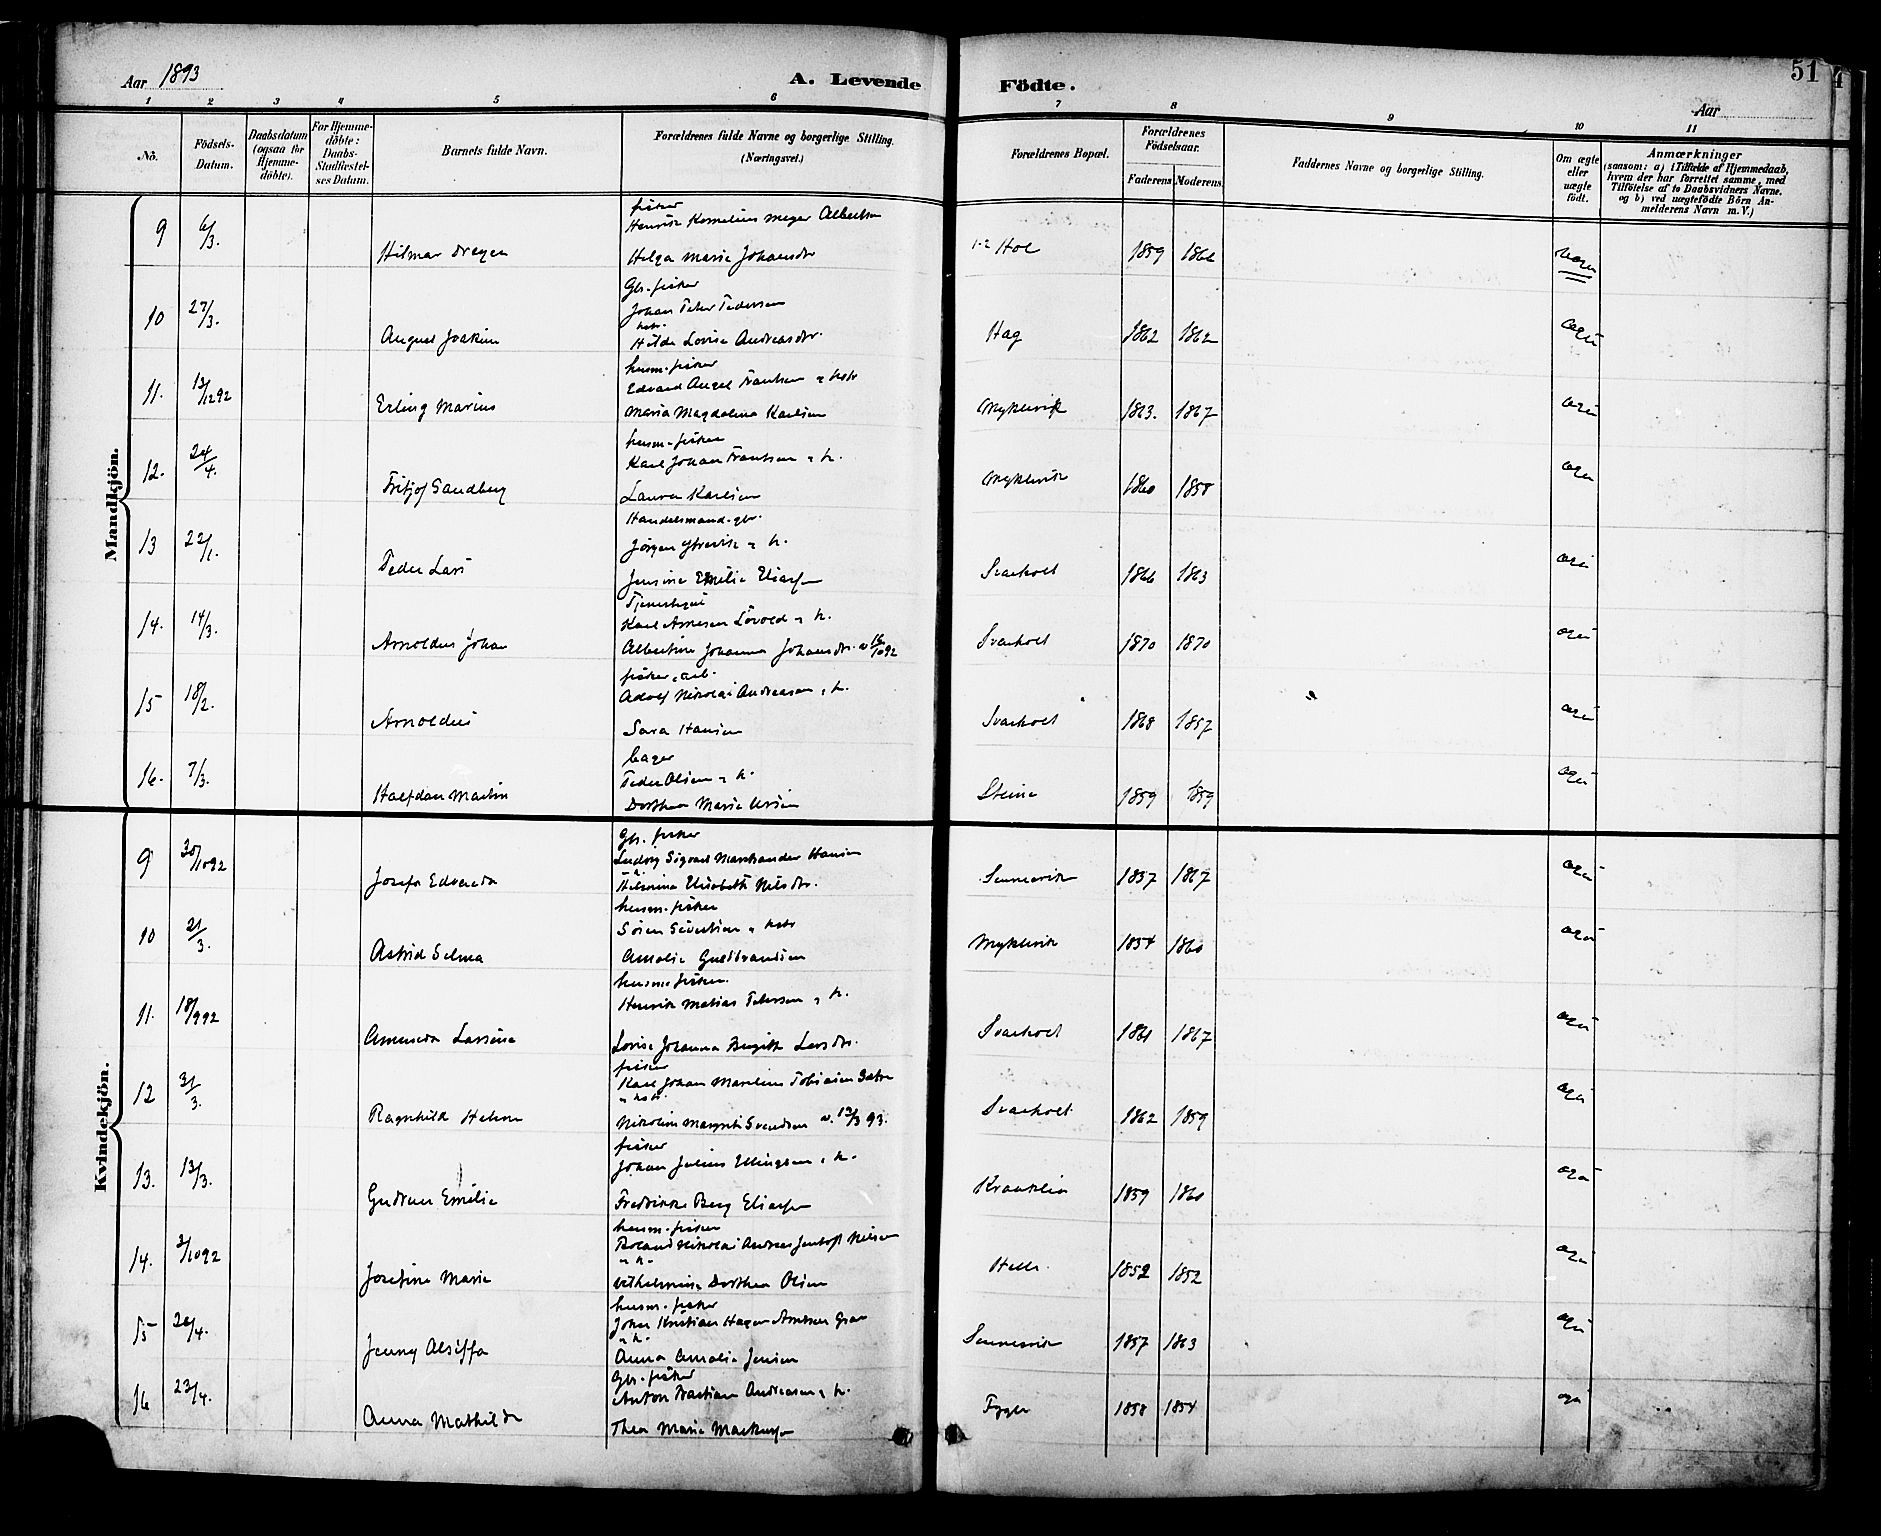 51
Aar 1893
A. Levende Födte.
Aar
1 2 3 4 5 6 7 8 9 10 11
No.
Födsels-Datum.
Daabsdatum (ogsaa for Hjemme-döbte).
For Hjemme-döbte: Daabs-Stadfæstel-ses Datum.
Barnets fulde Navn.
Forældrenes fulde Navne og borgerlige Stilling. (Næringsvei.)
Forældrenes Bopæl.
Forældrenes Födselsaar.
Faderens. Moderens.
Faddernes Navne og borgerlige Stilling.
Om ægte eller uægte födt.
Anmærkninger
(saasom: a) i Tilfælde af Hjemmedaab, hvem der har forrettet samme, med Tilföielse af to Daabsvidners Navne, og b) ved uægtefödte Börn An-melderens Navn m. V.)
Mandkjön.
fisker
Henrik Kornelius Meyer Albertsen
9 6/3. Hilmar Helga Marie Johansdr 1-2 Hol 1859 1866 uægte
Gbr. fisker
Johan Peter Pedersen
hstr.
10 27/3. August Joakim Hilda Lovise Andreasdr. Hag 1862 1862 ægte
husm. fisker
Edvard Angel Frantsen o hstr
11. 13/12 92 Erling Marius Maria Magdalena Karlsen Myklevik 1863. 1867 ægte
husm. fisker
Karl Johan Frantsen o h.
12. 24/4. Fritjof Sandberg Laura Karlsen Myklevik 1860 1858 ægte
Handelsmand. gbr.
Jörgen o h.
13 22/1. Peder Lars Jensine Emilie Eliasen Svarholt 1866 1863 ægte
Karl Arnesen Lövold o h.
14. 14/3. Arnoldus Johan Albertine Johanna Johansdr. v 16/10 92 Svarholt 1870 1870 ægte
fisker, arb.
Adolf Nikolai Andreasen o h.
15 18/2. Arnoldus Sara Hansen Svarholt 1868 1857 ægte
bager
Peder Olsen o h.
16. 7/3. Halfdan Martin Dorthea Marie Steine 1859 1859 ægte
Kvindekjön.
Gbr. fisker
Ludvig Sigvart Hansen
o h.
9 30/10 92 Josefa Edvarda Elisabeth Nilsdr. Sennesvik 1857 1867 ægte
husm. fisker
Sören Sivertsen o hstr
10 21/3. Astrid Selma Amalie Guldbrandsen Myklevik 1854 1860 ægte
husm. fisker.
Henrik Matias Petersen o h.
11. 18/9 92 Amanda Larsine Lovise Johanna Birgitte Larsdr. Svarholt 1861 1867 ægte
fisker
Karl Johan Marelius Tobiasen
o hstr.
12 31/3. Ragnhild Helene Nikoline Margrete Svendsen v. 12/3 93. Svarholt 1862 1859 ægte
fisker
Johan Julius Ellingsen o h.
13. 13/3. Gudrun Emilie Fredrikke Berg Eliasen 1859 1860 ægte
husm. fisker
Roland Nikolai Andreas Jentoft Nilsen
o h.
14. 3/10 92 Josefine Marie Vilhelmine Dorthea Olsen Helle 1852 1852 ægte
husm. fisker
Johan Kristian Hagen Arntsen
o h.
15 26/4. Jenny Anna Amalie Jensen Sennesvik 1857 1863 ægte
Gbr. fisker
Anton Andreasen o h.
16 23/4. Anna Mathilde Thea Marie Fygle 1858 1854 ægte